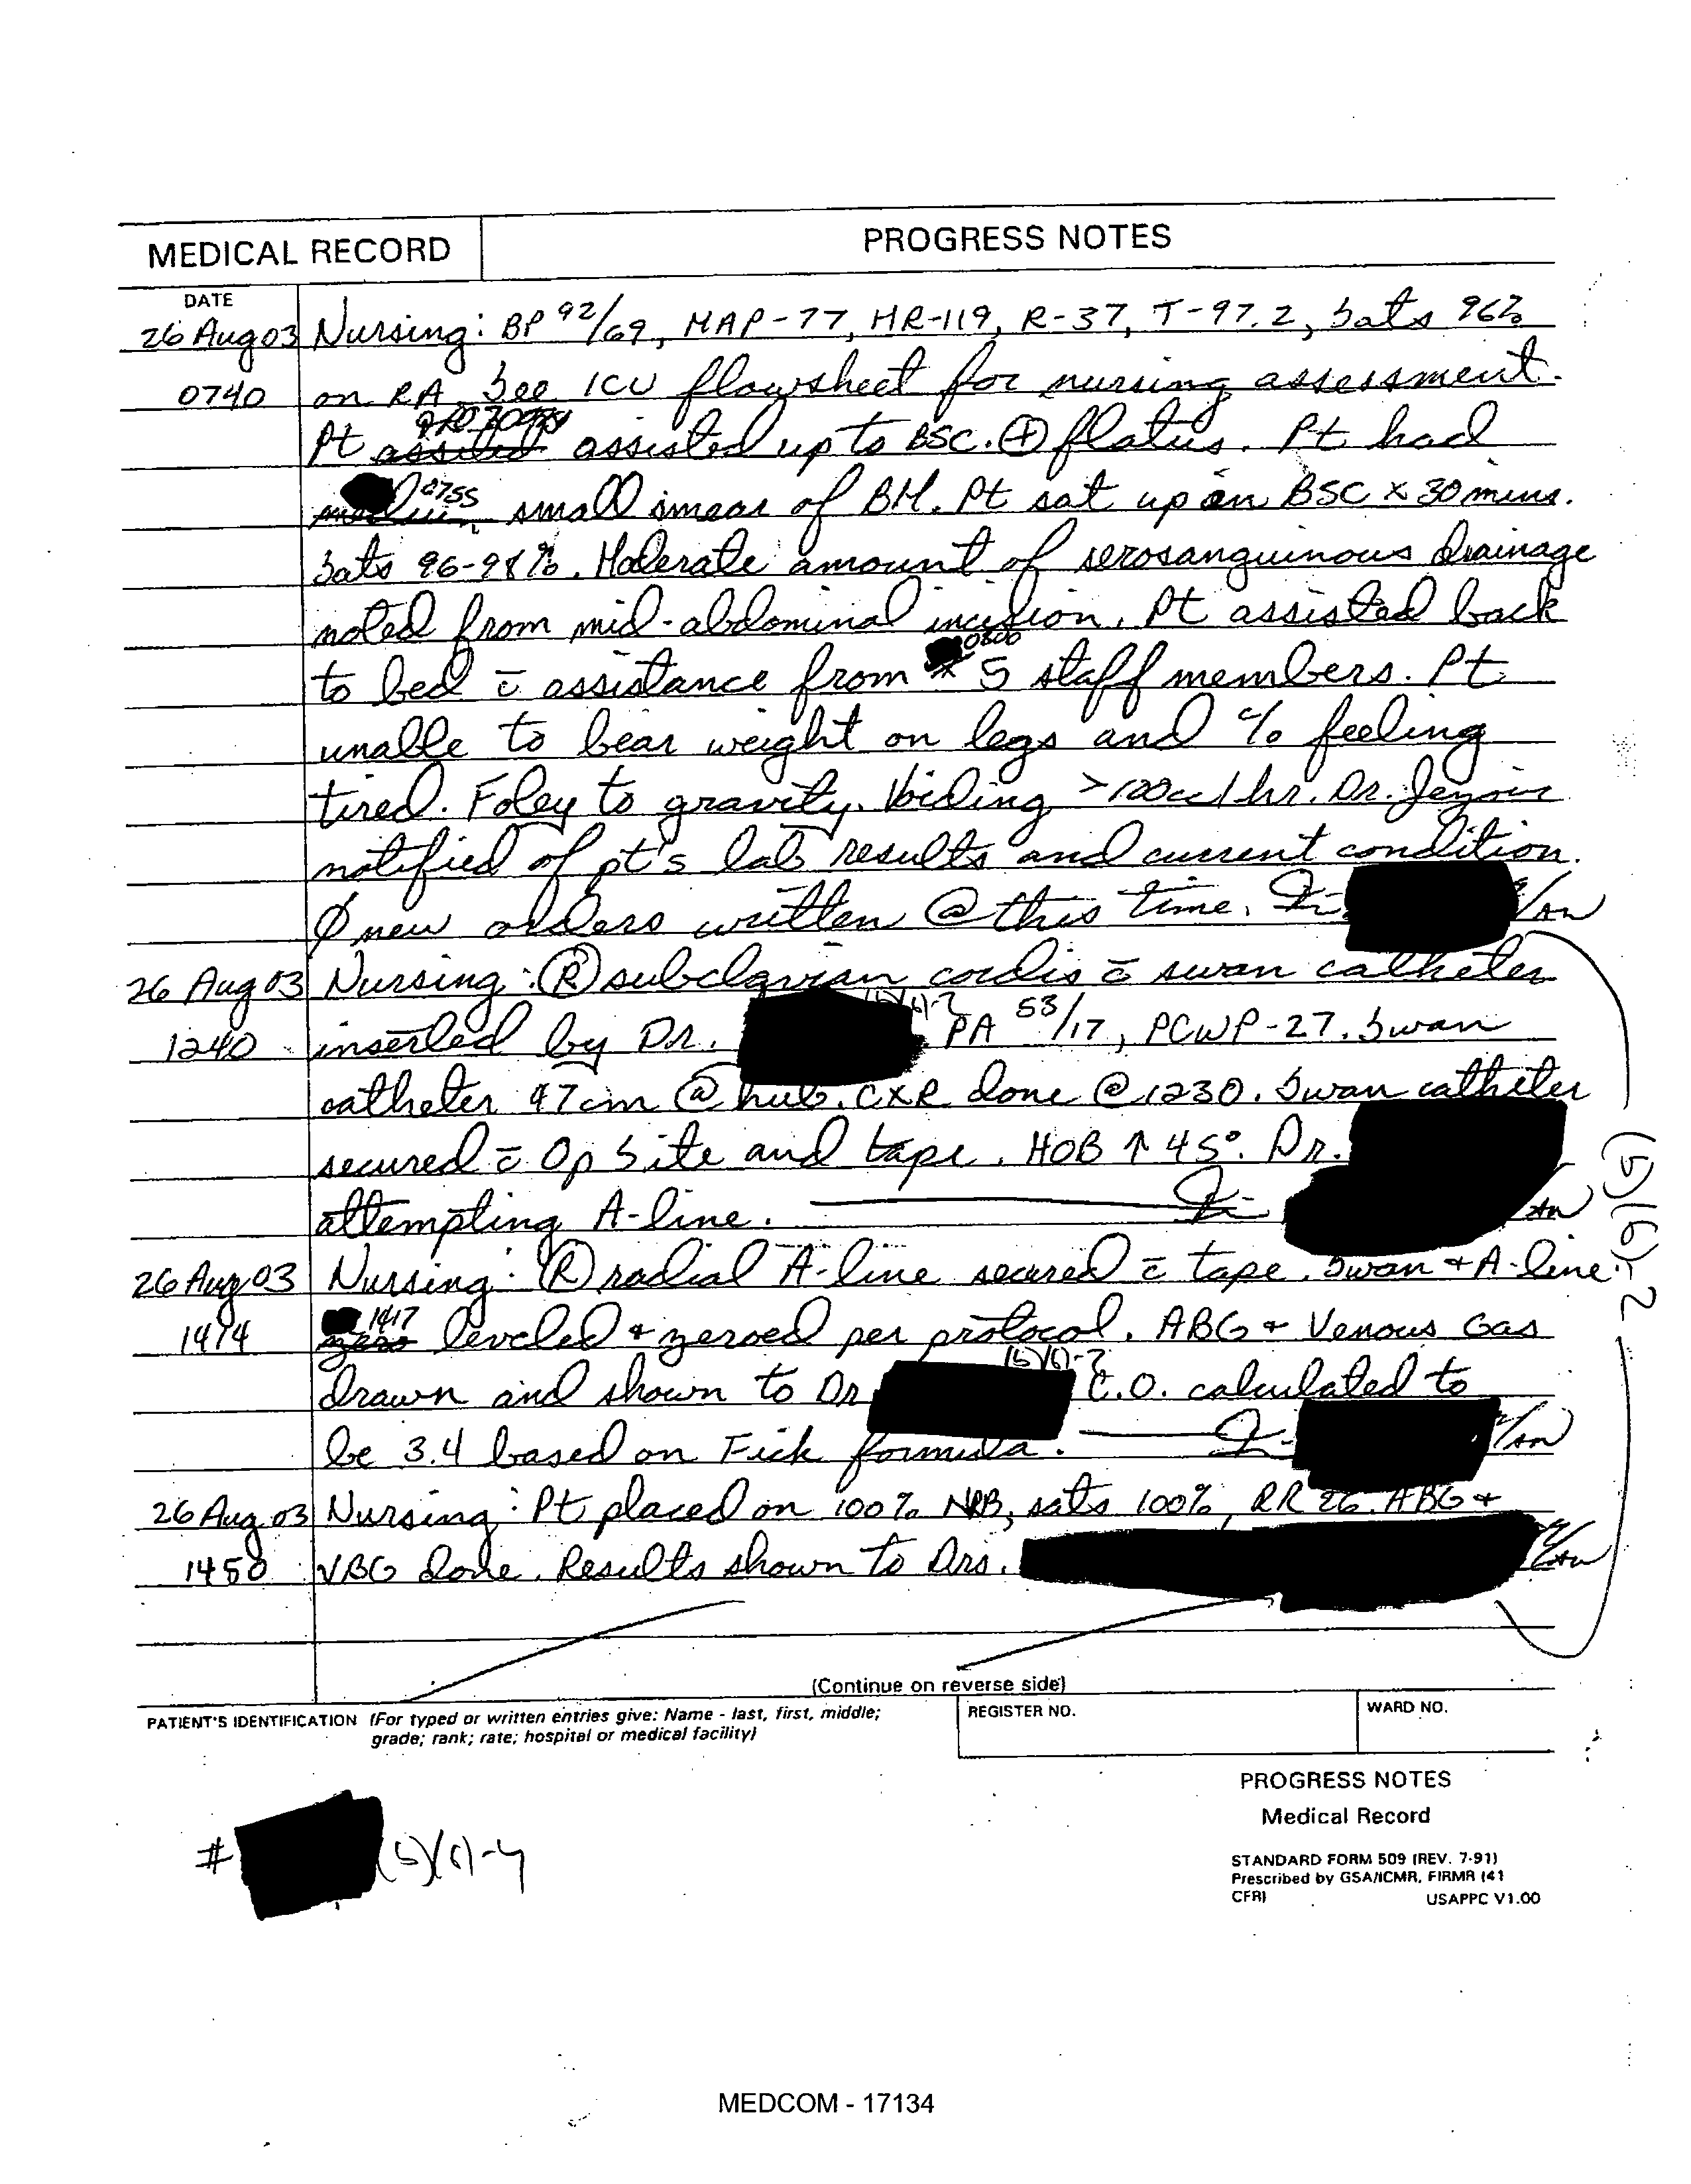 MEDICAL RECORD
PROGRESS NOTES
DATE
26 Aug 03 Nursing: BP 92/69, MAP-77, HR-119, R-37, T-97.2, Sats 96%
0740 on RA. See ICU flowsheet for nursing assessment.
Pt assisted up to BSC. ⊕ flatus. Pt had
0755
small smear of BM. Pt sat up on BSC x 30 mins.
Sats 96-98%. Moderate amount of serosanguinous drainage
noted from mid-abdominal incision. Pt assisted back
0800
to bed c̄ assistance from 5 staff members. Pt
unable to bear weight on legs and c/o feeling
tired. Foley to gravity. Voiding >100cc/hr. Dr.
notified of pt's lab results and current condition.
Ø new orders written @ this time.
26 Aug 03 Nursing: Ⓡ subclavian cordis c̄ swan catheter
(b)(6)-2
1240 inserted by Dr. PA 53/17, PCWP-27. Swan
catheter 47cm @ hub. CXR done @ 1230. Swan catheter
secured c̄ Op Site and tape. HOB ↑ 45°. Dr.
attempting A-line.
(b)(6)-2
26 Aug 03 Nursing: Ⓡ radial A-line secured c̄ tape. Swan + A-line
1417
1414 zero leveled + zeroed per protocol. ABG + Venous Gas
(b)(6)-2
drawn and shown to Dr C.O. calculated to
be 3.4 based on Fick formula.
26 Aug 03 Nursing: Pt placed on 100% NRB, sats 100%, RR 26. ABG +
1450 VBG done. Results shown to Drs.
(Continue on reverse side)
PATIENT'S IDENTIFICATION (For typed or written entries give: Name - last, first, middle;
grade; rank; rate; hospital or medical facility)
REGISTER NO.
WARD NO.
PROGRESS NOTES
Medical Record
# (b)(6)-4
STANDARD FORM 509 (REV. 7-91)
Prescribed by GSA/ICMR, FIRMR (41
CFR)
USAPPC V1.00
MEDCOM - 17134